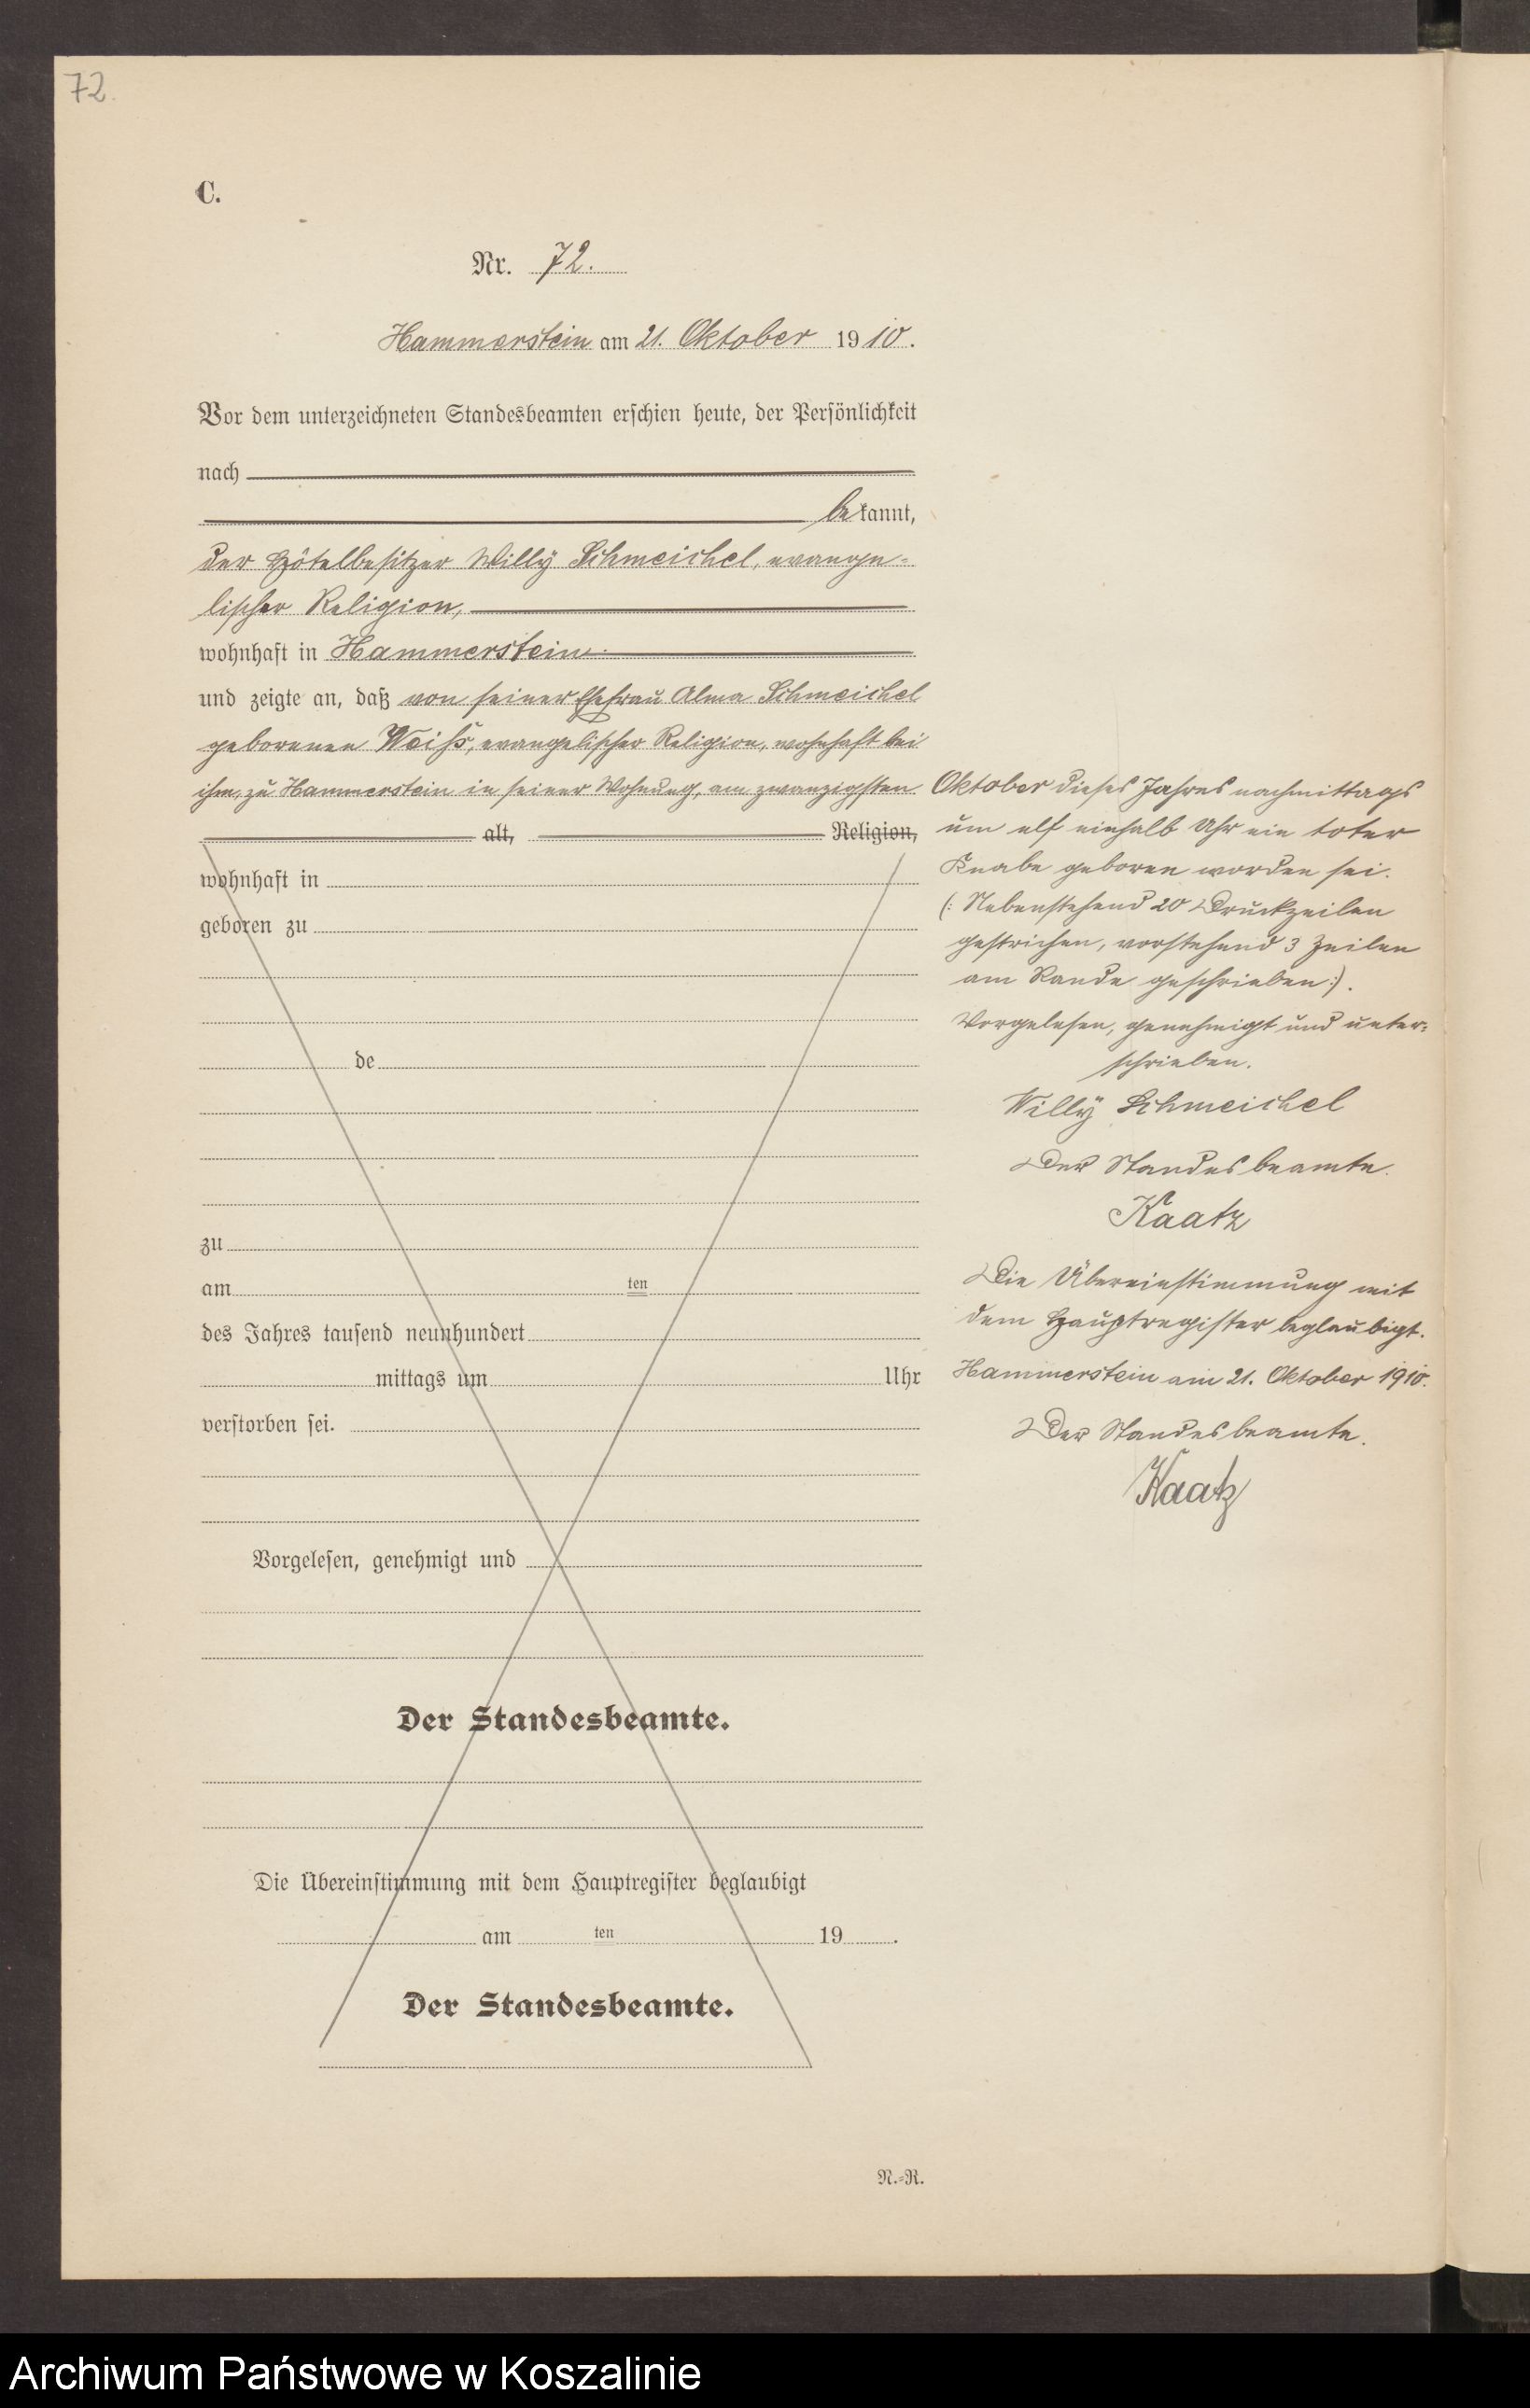 72.
C.
Nr. 72.
Hammerstein am 21. Oktober 1910.
Vor dem unterzeichneten Standesbeamten erschien heute, der Persönlichkeit
nach
bekannt,
der Hôtelbesitzer Willy Schmeichel, evange-
lischer Religion,
wohnhaft in Hammerstein
und zeigte an, daß von seiner Ehefrau Alma Schmeichel
geborenen Weiß, evangelischer Religion, wohnhaft bei
ihm, zu Hammerstein in seiner Wohnung, am zwanzigsten
alt, Religion,
wohnhaft in
geboren zu
de
zu
am ten
des Jahres tausend neunhundert
mittags um Uhr
verstorben sei.
Vorgelesen, genehmigt und
Der Standesbeamte.
Die Übereinstimmung mit dem Hauptregister beglaubigt
am ten 19 .
Der Standesbeamte.
N.-R.
Oktober dieses Jahres nachmittags
um elf einhalb Uhr ein toter
Knabe geboren worden sei.
(: Nebenstehend 20 Druckzeilen
gestrichen, vorstehend 3 Zeilen
am Rande geschrieben :).
Vorgelesen, genehmigt und unter-
schrieben.
Willy Schmeichel
Der Standesbeamte.
Kaatz
Die Übereinstimmung mit
dem Hauptregister beglaubigt.
Hammerstein am 21. Oktober 1910.
Der Standesbeamte.
Kaatz
Archiwum Państwowe w Koszalinie